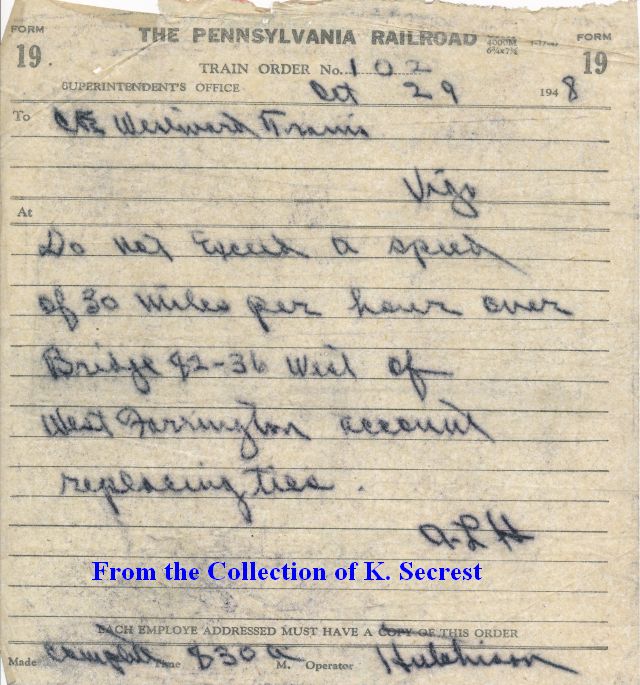 FORM 19
THE PENNSYLVANIA RAILROAD
FORM 19
TRAIN ORDER No. 102
SUPERINTENDENT'S OFFICE Oct 29 1948
To C&E Westward Trains
At Vigo
Do not Exceed a speed
of 30 miles per hour over
Bridge 82-36 West of
West Farrington account
replacing ties.
A L H
From the Collection of K. Secrest
EACH EMPLOYE ADDRESSED MUST HAVE A COPY OF THIS ORDER
Made Complete Time 830 a M. Operator Hutchison